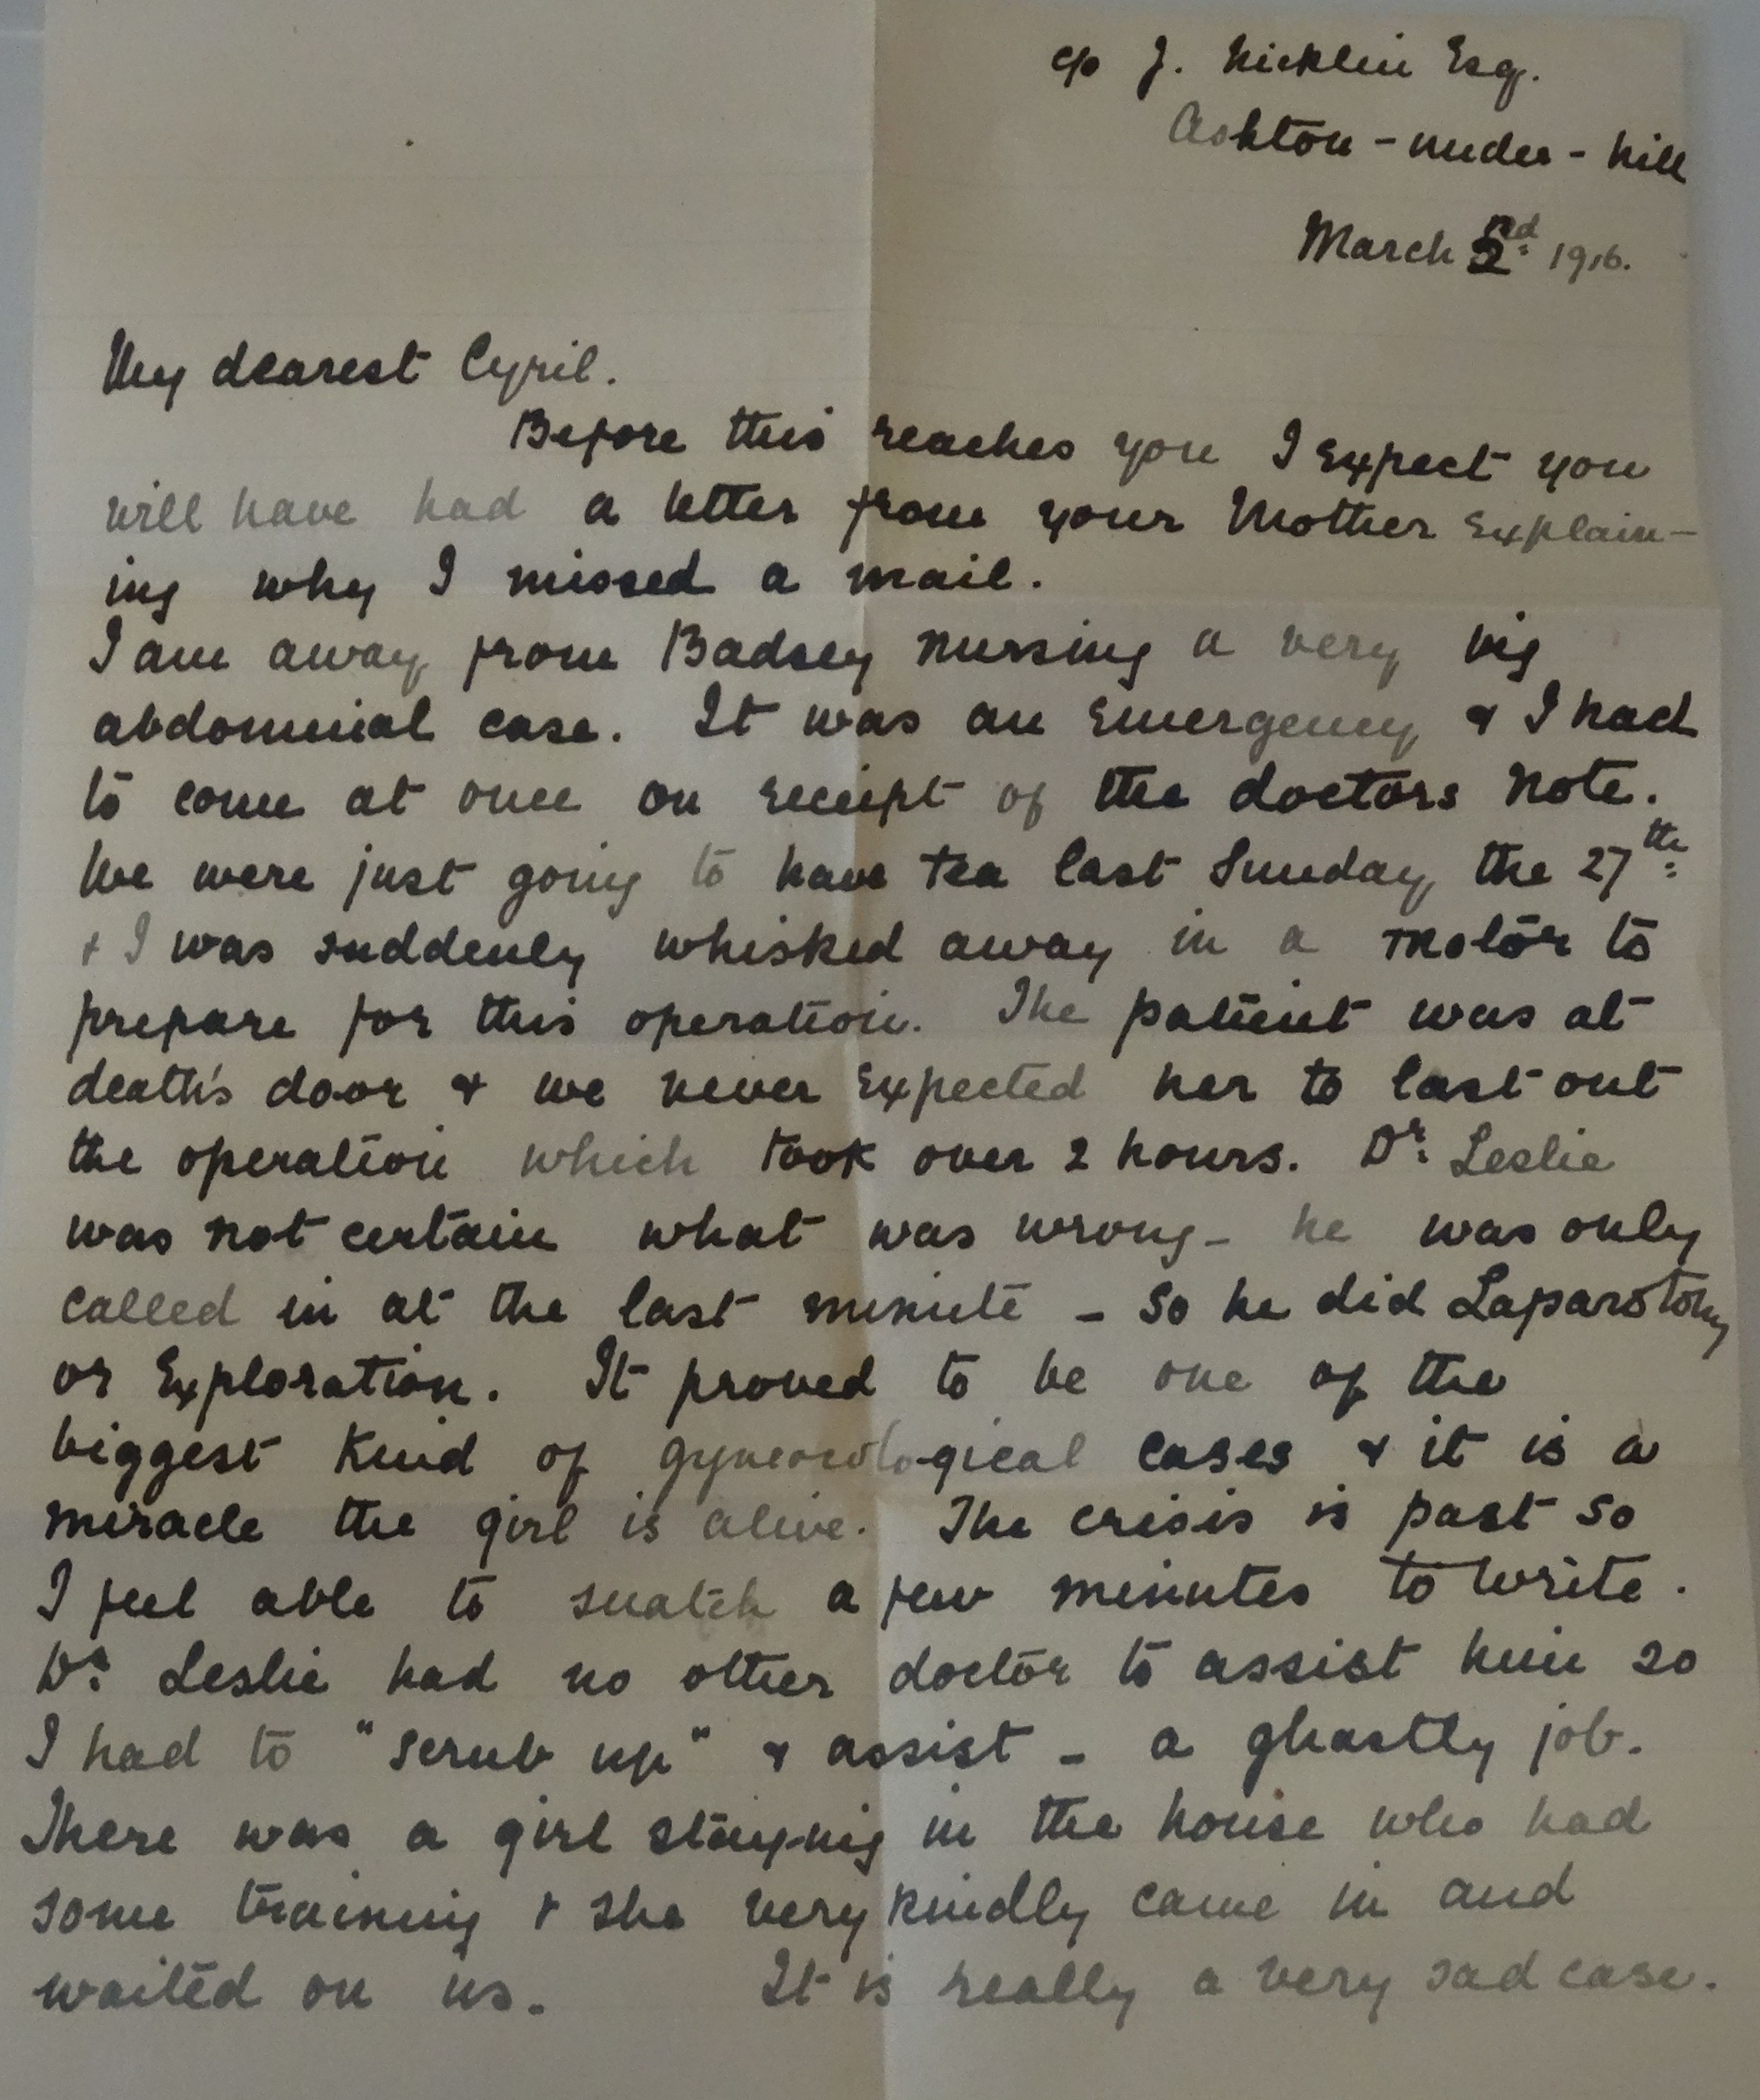 c/o J. Nicklin Esq.
Ashton-under-hill
March 2nd 1916.
My dearest Cyril.
Before this reaches you I expect you
will have had a letter from your Mother explain-
ing why I missed a mail.
I am away from Badsey nursing a very big
abdominal case. It was an emergency & I had
to come at once on receipt of the doctors note.
We were just going to have tea last Sunday, the 27th
& I was suddenly whisked away in a motor to
prepare for this operation. The patient was at
death's door & we never expected her to last out
the operation which took over 2 hours. Dr. Leslie
was not certain what was wrong - he was only
called in at the last minute - so he did Laparotomy
or Exploration. It proved to be one of the
biggest kind of gynecological cases & it is a
miracle the girl is alive. The crisis is past so
I feel able to snatch a few minutes to write.
Dr. Leslie had no other doctor to assist him so
I had to "scrub up" & assist - a ghastly job.
There was a girl staying in the house who had
some training & she very kindly came in and
waited on us. It is really a very sad case.